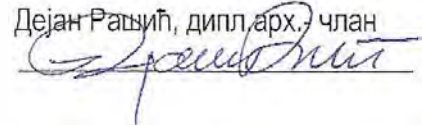 Дејан Рашић, дипл.арх.- члан